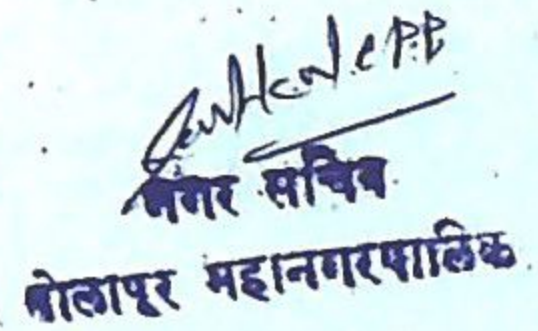 नगर सचिव
सोलापूर महानगरपालिक